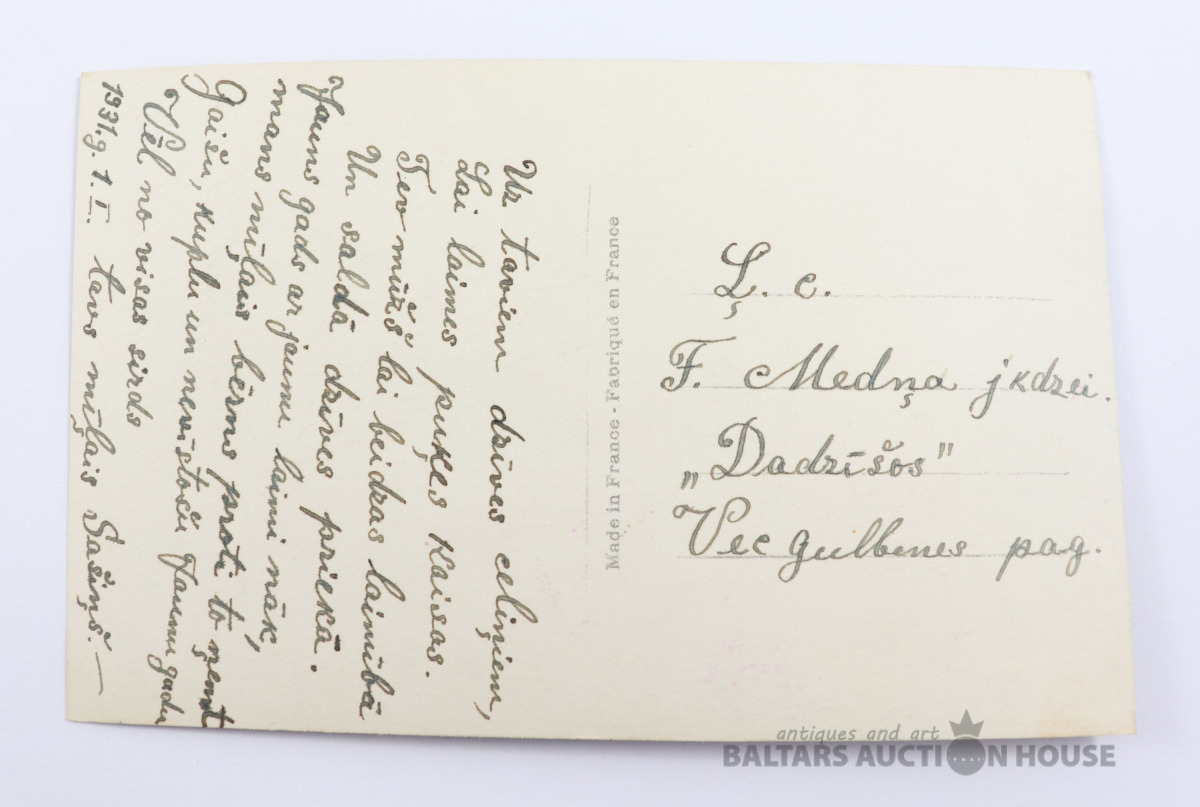 Uz taviem dzīves celiņiem,
Lai laimes puķes kaisas.
Tev mūžs lai beidzas laimībā
Un saldā dzīves priekā.
Jauns gads ar jaunu laimi nāk,
mans mīļais bērns proti to ņemt
Gaišu, kuplu un nevīstošu Jaunu gadu
Vēl no visas sirds
1931.g. 1. I. tavs mīļais Sašiņš. —
Made in France - Fabriqué en France
Ļ. c.
F. Medņa jkdzei.
„Dadzīšos"
Vec gulbenes pag.
antiques and art
BALTARS AUCTION HOUSE